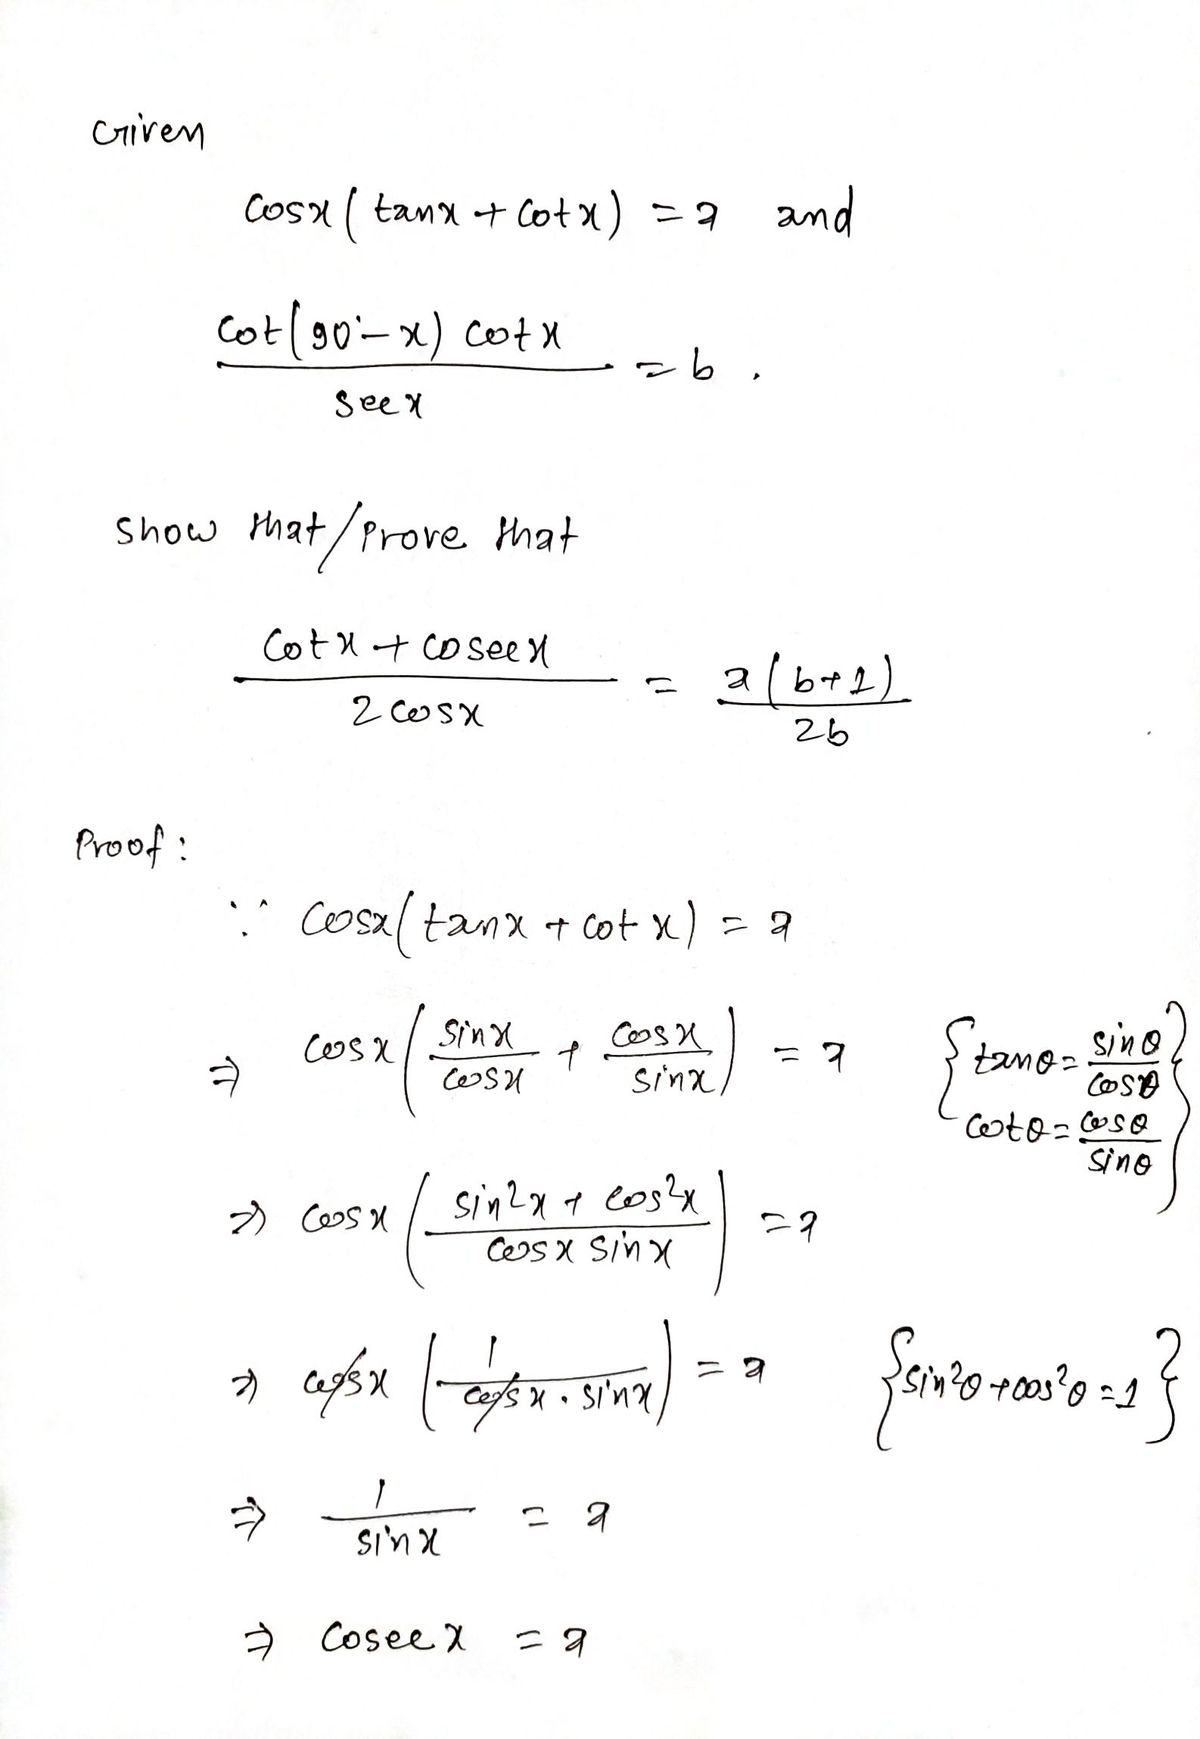 Given
cosx ( tanx + cotx ) = a and
cot(90°- x) cotx / secx = b .
Show that/Prove that
cotx + cosecx / 2 cosx = a ( b+1 ) / 2b
Proof :
∵ cosx ( tanx + cot x ) = a
⇒ cosx ( sinx / cosx + cosx / sinx ) = a { tanθ = sinθ / cosθ cotθ = cosθ / sinθ }
⇒ cosx ( sin²x + cos²x / cosx sinx ) = a
⇒ cosx ( 1 / cosx . sinx ) = a { sin²θ + cos²θ = 1 }
⇒ 1 / sinx = a
⇒ cosecx = a